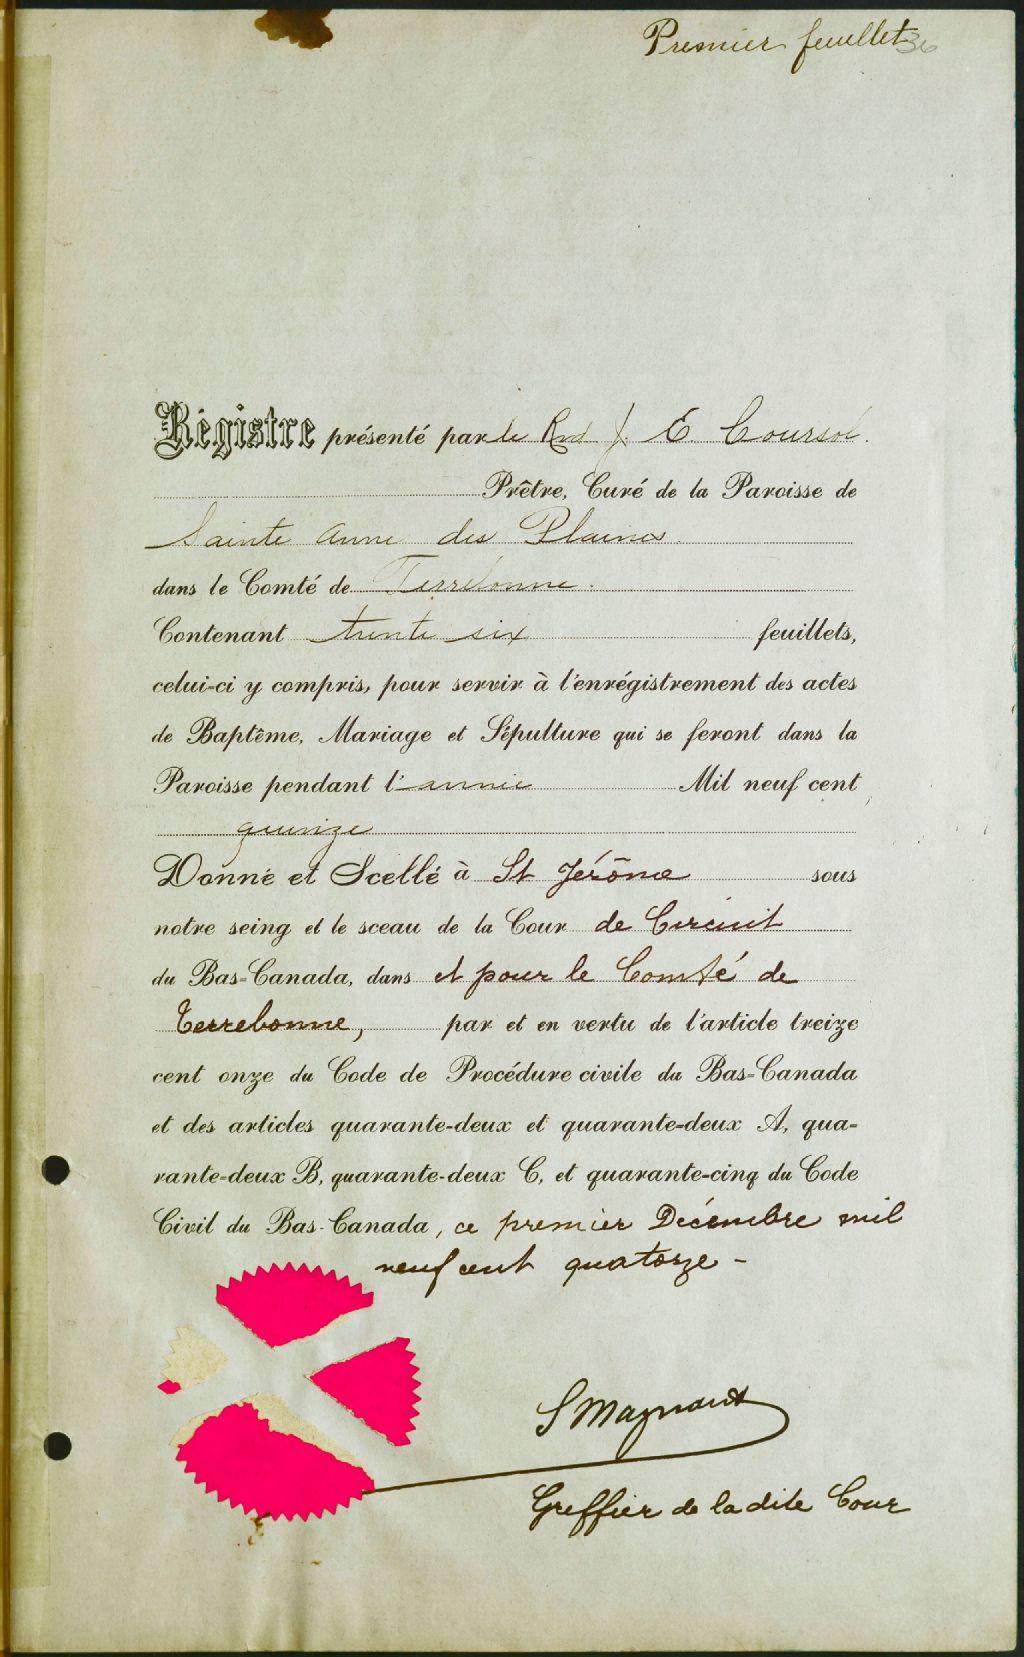 Premier feuillet 36
Régistre présenté par le Rvd J. E. Coursol.
Prêtre, Curé de la Paroisse de
Sainte Anne des Plaines
dans le Comté de Terrebonne.
Contenant trente six feuillets,
celui-ci y compris, pour servir à l'enrégistrement des actes
de Baptême, Mariage et Sépulture qui se feront dans la
Paroisse pendant l'année Mil neuf cent
quinze
Donné et Scellé à St Jérôme sous
notre seing et le sceau de la Cour de Circuit
du Bas-Canada, dans et pour le Comté de
Terrebonne, par et en vertu de l'article treize
cent onze du Code de Procédure civile du Bas-Canada
et des articles quarante-deux et quarante-deux A, qua-
rante-deux B, quarante-deux C, et quarante-cinq du Code
Civil du Bas-Canada, ce premier Décembre mil
neuf cent quatorze -
Greffier de la dite Cour